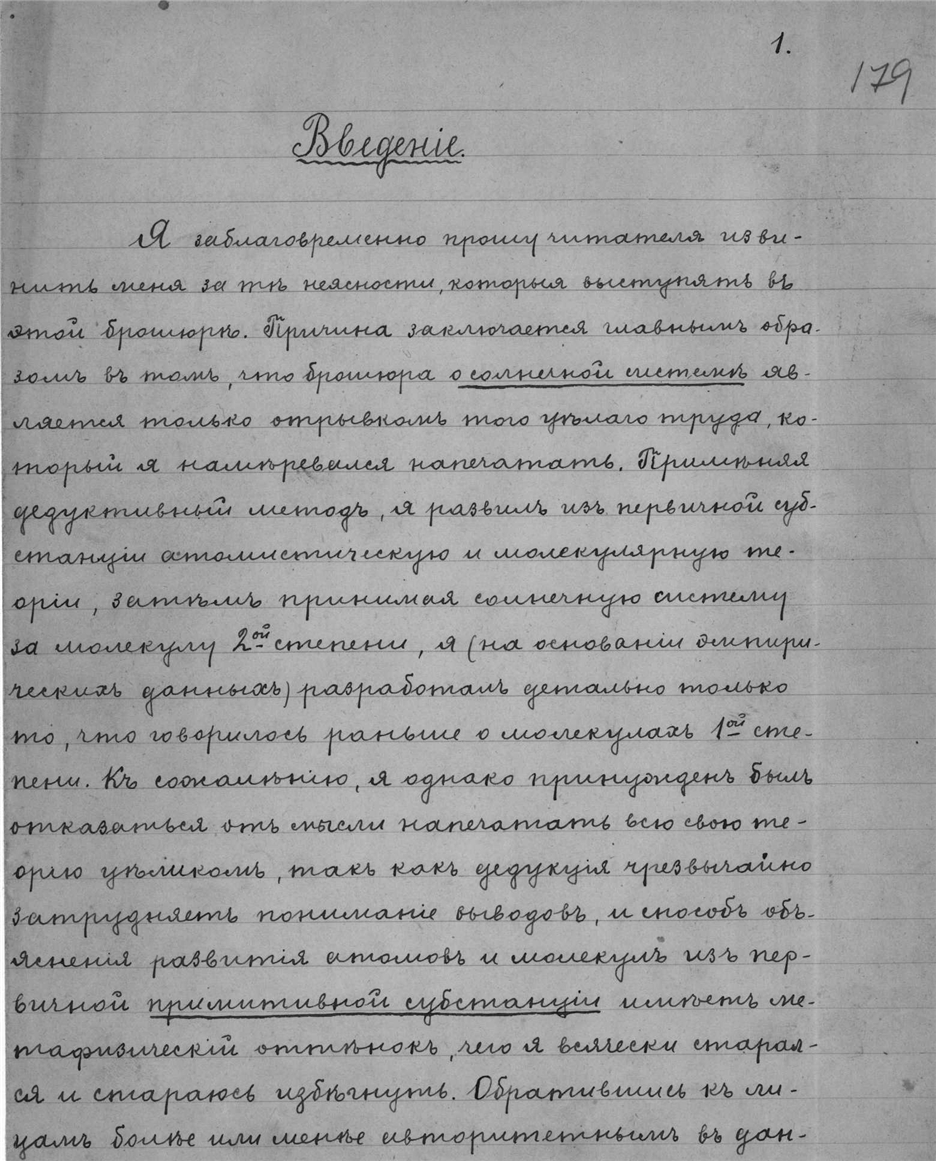 1.
179
Введеніе.
Я заблаговременно прошу читателя изви-
нить меня за тѣ неясности, которыя выступятъ въ
этой брошюрѣ. Причина заключается главнымъ обра-
зомъ въ томъ, что брошюра о солнечной системѣ яв-
ляется только отрывкомъ того цѣлаго труда, ко-
торый я намѣревался напечатать. Примѣняя
дедуктивный методъ, я развилъ изъ первичной суб-
станціи атомистическую и молекулярную те-
оріи, затѣмъ принимая солнечную систему
за молекулу 2ой степени, я (на основаніи эмпири-
ческихъ данныхъ) разработалъ детально только
то, что говорилось раньше о молекулахъ 1ой сте-
пени. Къ сожалѣнію, я однако принужденъ былъ
отказаться отъ мысли напечатать всю свою те-
орію цѣликомъ, такъ какъ дедукція чрезвычайно
затрудняетъ пониманіе выводовъ, и способъ объ-
ясненія развитія атомовъ и молекулъ изъ пер-
вичной примитивной субстанціи имѣетъ ме-
тафизическій оттѣнокъ, чего я всячески старал-
ся и стараюсь избѣгнуть. Обратившись къ ли-
цамъ болѣе или менѣе авторитетнымъ въ дан-